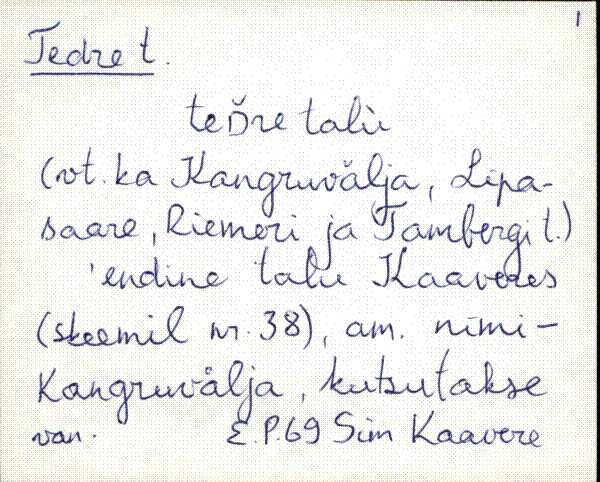 1
Tedre t.
teD̆re talù
(vt. ka Kangruvälja, Lipa-
saare, Riemeri ja Tambergi t.)
'endine talu Kaaveres
(skeemil nr. 38), am. nimi -
Kangruvälja, kutsutakse
van. E.P.69 Sim Kaavere